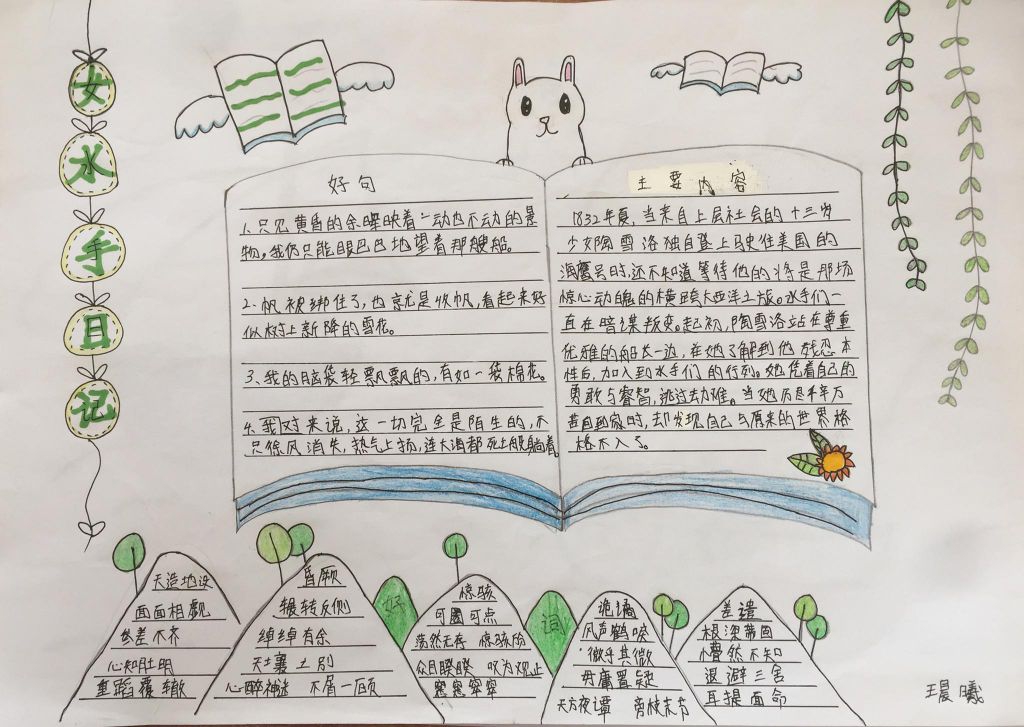 女水手日记
好句
1、只见黄昏的余晖映着一动也不动的景
物，我们只能眼巴巴地望着那艘船。
2、帆被绑住了，也就是收帆，看起来好
似树上新降的雪花。
3、我的脑袋轻飘飘的，有如一袋棉花。
4、我对来说，这一切完全是陌生的，不
只徐风消失，热气上扬，连大海都死土般躺着
主要内容
1832年夏，当来自上层社会的十三岁
少女陶雪洛独自登上驶往美国的
海鹰号时，还不知道等待他的将是那场
惊心动魄的横跨大西洋之旅。水手们一
直在暗谋叛变。起初，陶雪洛站在尊重
优雅的船长一边，在她了解到他残忍本
性后，加入到水手们的行列。她凭着自己的
勇敢与睿智，逃过劫难。当她历尽千辛万
苦回到家时，却发现自己与原来的世界格
格不入了。
天造地设
面面相觑
参差不齐
心知肚明
重蹈覆辙
昏厥
辗转反侧
绰绰有余
天壤之别
心醉神迷 不屑一顾
好
惊骇
可圈可点
荡然无存 惊骇
众目睽睽 叹为观止
窸窸窣窣
词
诡谲
风声鹤唳
微乎其微
毋庸置疑
天方夜谭 旁枝末节
差遣
根深蒂固
懵然不知
退避三舍
耳提面命
王晨曦